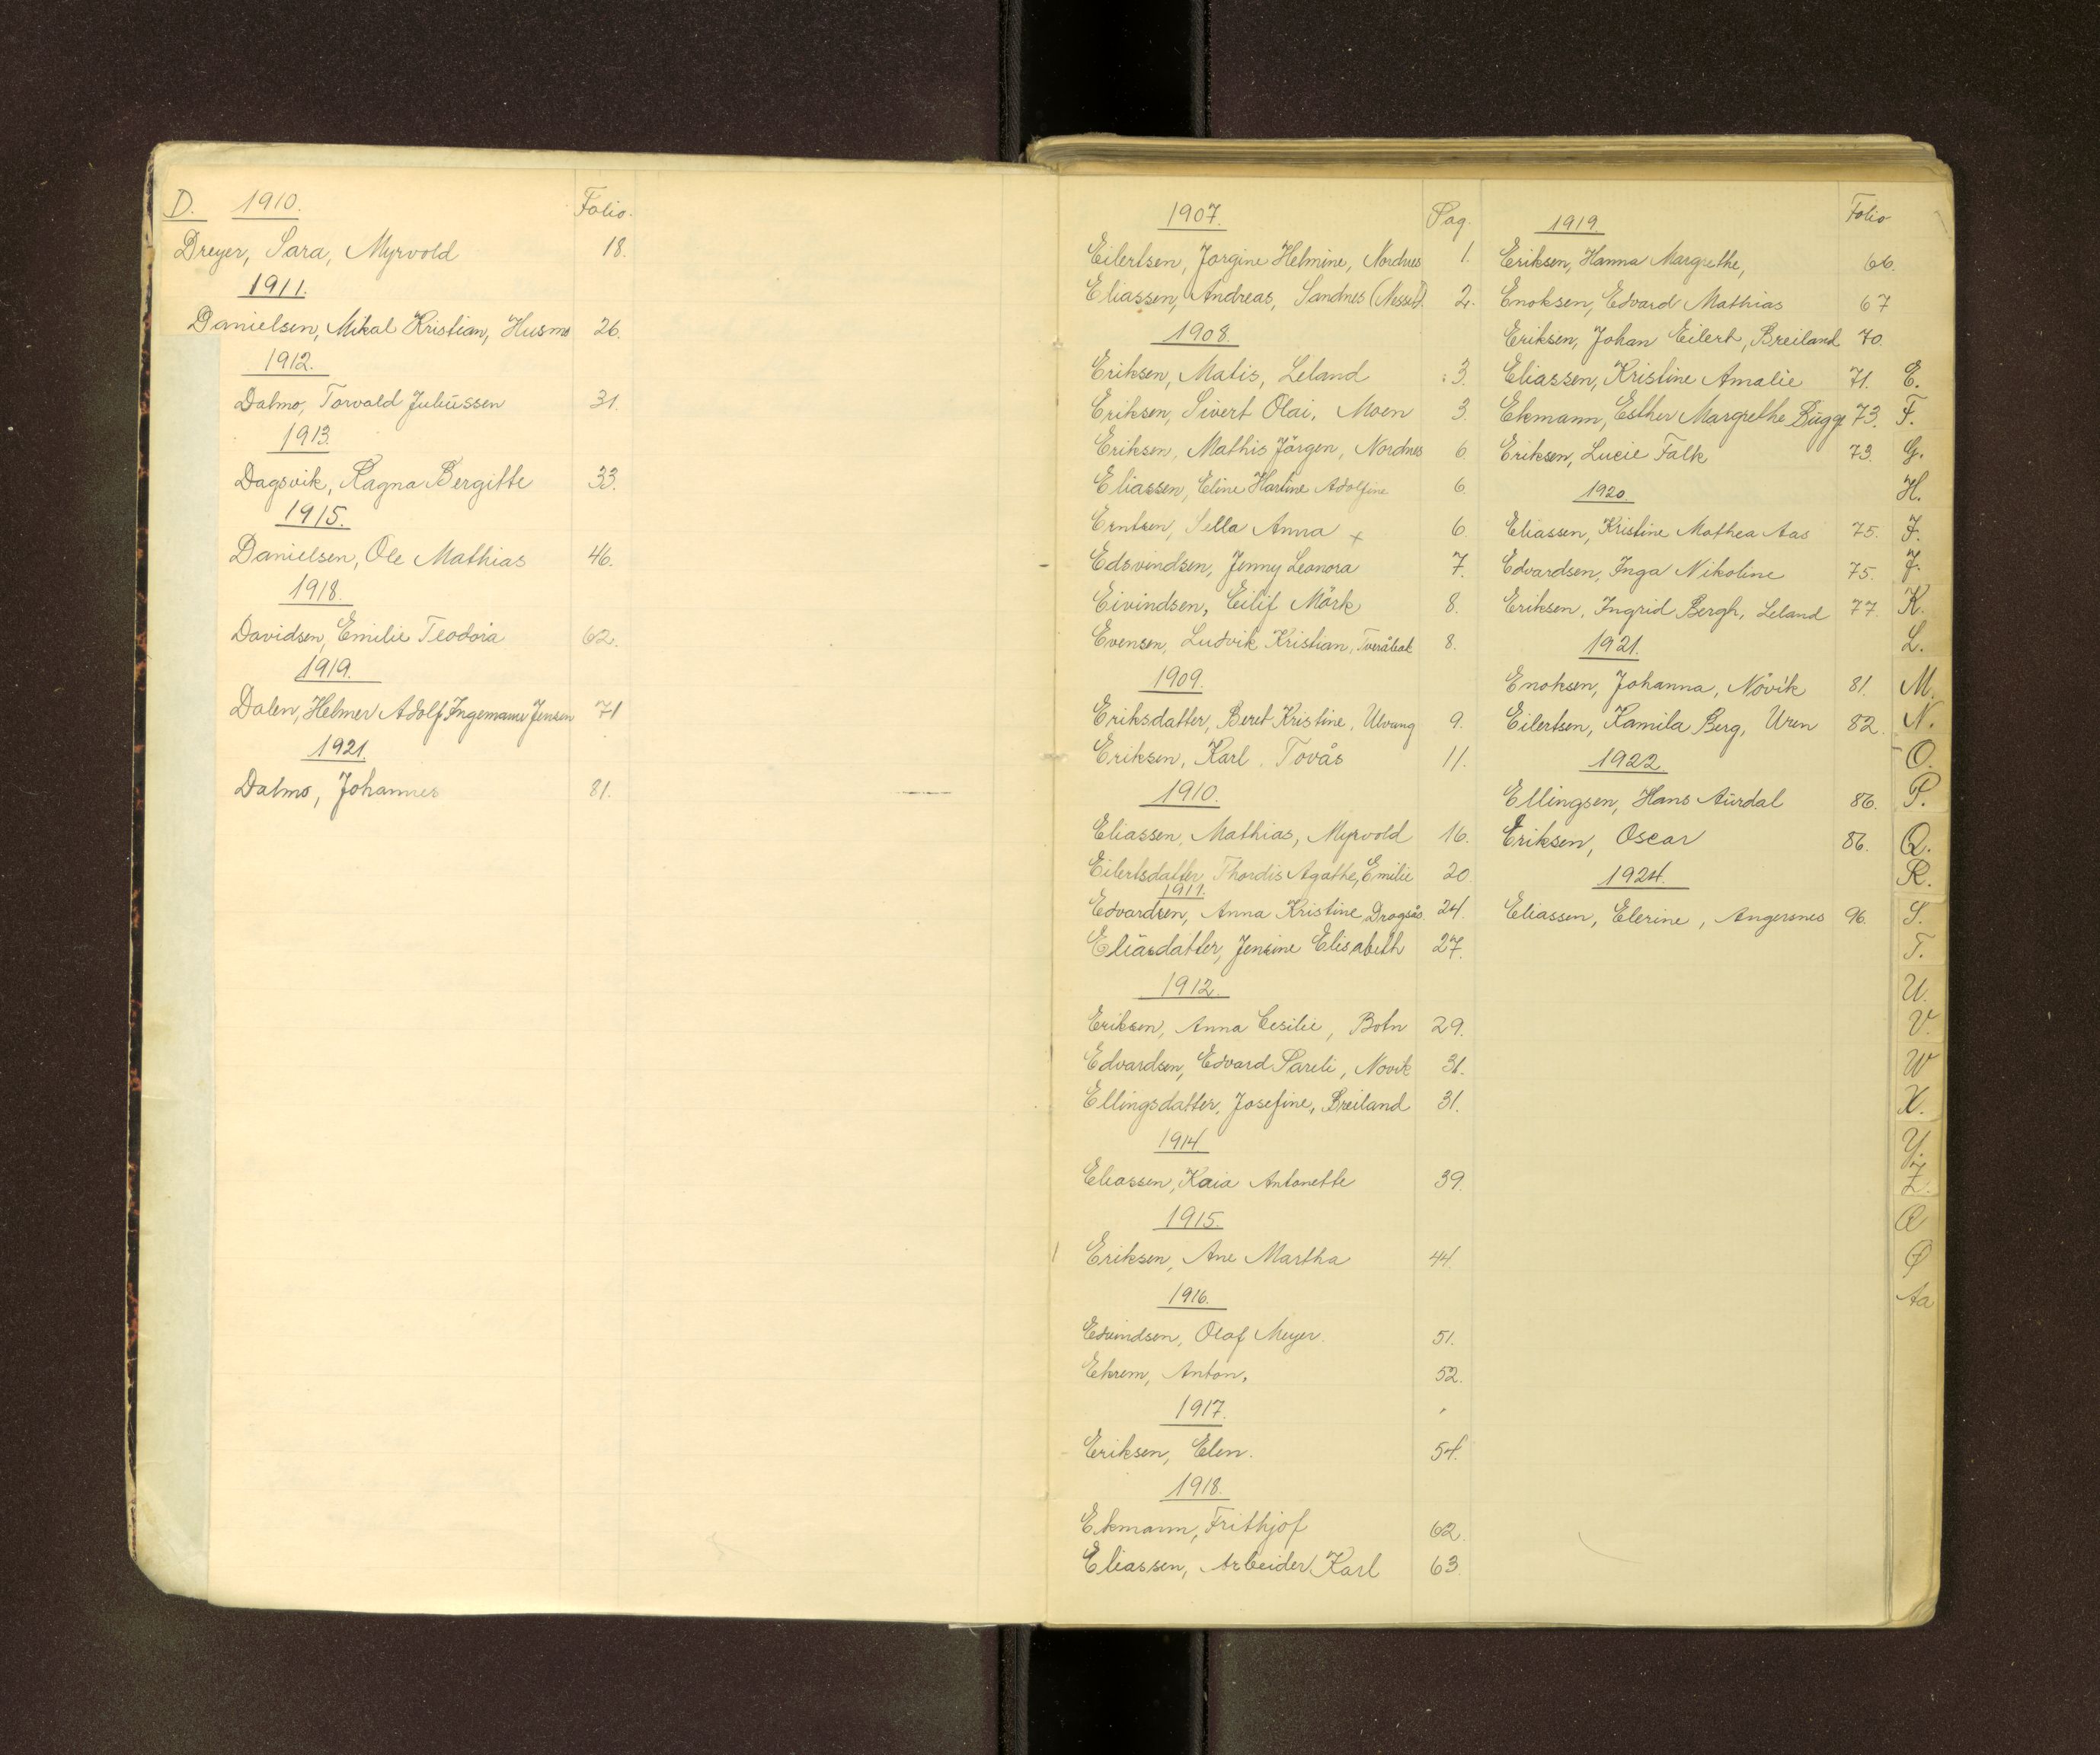 D. 1910. Folio.
Dreyer, Sara, Myrvold 18.
1911.
Danielsen, Mikal Kristian, Husmo 26.
1912.
Dalmo, Torvald Juliussen 31.
1913.
Dagsvik, Ragna Bergitte 33.
1915.
Danielsen, Ole Mathias 46.
1918.
Davidsen, Emilie Teodora 62.
1919.
Dalen, Helmer Adolf Ingemann Jensen 71
1921.
Dalmo, Johannes 81.
1907. Pag.
Eilertsen, Jørgine Helmine, Nordnes 1.
Eliassen, Andreas, Sandnes 2.
1908.
Eriksen, Matis, Leland 3.
Eriksen, Sivert Olai, Moen 3.
Eriksen, Mathis Jörgen, Nordnes 6
Eliassen, Eline Hartine Adolfine 6.
Erntsen, Sella Anna + 6.
Edsvindsen, Jenny Leonora 7.
Eivindsen, Eilif Mörk 8.
Evensen, Ludvik Kristian, 8.
1909.
Eriksdatter, Beret Kristine, Ulvung 9.
Eriksen, Karl, Tovås 11.
1910.
Eliassen, Mathias, Myrvold 16.
Eilertsdatter, Thordis Agathe, Emilie 20.
1911.
Edvardsen, Anna Kristine, Dragsås 24.
Eliasdatter, Jensine Elisabeth 27.
1912.
Eriksen, Anna Cesilie, Botn 29.
Edvardsen, Edvard Pareli, Novik 31.
Ellingsdatter, Josefine, Breiland 31.
1914.
Eliassen, Kaia Antonette 39.
1915.
Eriksen, Ane Martha 44.
1916.
Edvindsen, Olaf Meyer. 51.
Ekrem, Anton, 52.
1917.
Eriksen, Elen. 54.
1918.
Ekmann, Frithjof 62.
Eliassen, Arbeider Karl 63.
1919. Folio
Eriksen, Hanna Margrethe, 66.
Enoksen, Edvard Mathias 67
Eriksen, Johan Eilert, Breiland 70.
Eliassen, Kristine Amalie 71.
Ekmann, Esther Margrethe Bügge 73.
Eriksen, Lucie Falk 73.
1920.
Eliassen, Kristine Mathea Aas 75.
Edvardsen, Inga Nikoline 75.
Eriksen, Ingrid Bergh, Leland 77.
1921.
Enoksen, Johanna, Növik 81.
Eilertsen, Kamila Berg, Uren 82.
1922.
Ellingsen, Hans Aürdal 86.
Eriksen, Oscar 86.
1924.
Eliassen, Elerine, Angersnes 96.
E.
F.
G.
H.
I.
J.
K.
L.
M.
N.
O.
P.
Q.
R.
S.
T.
U.
V.
W
X.
Y.
Z.
Æ
Ø
Aa